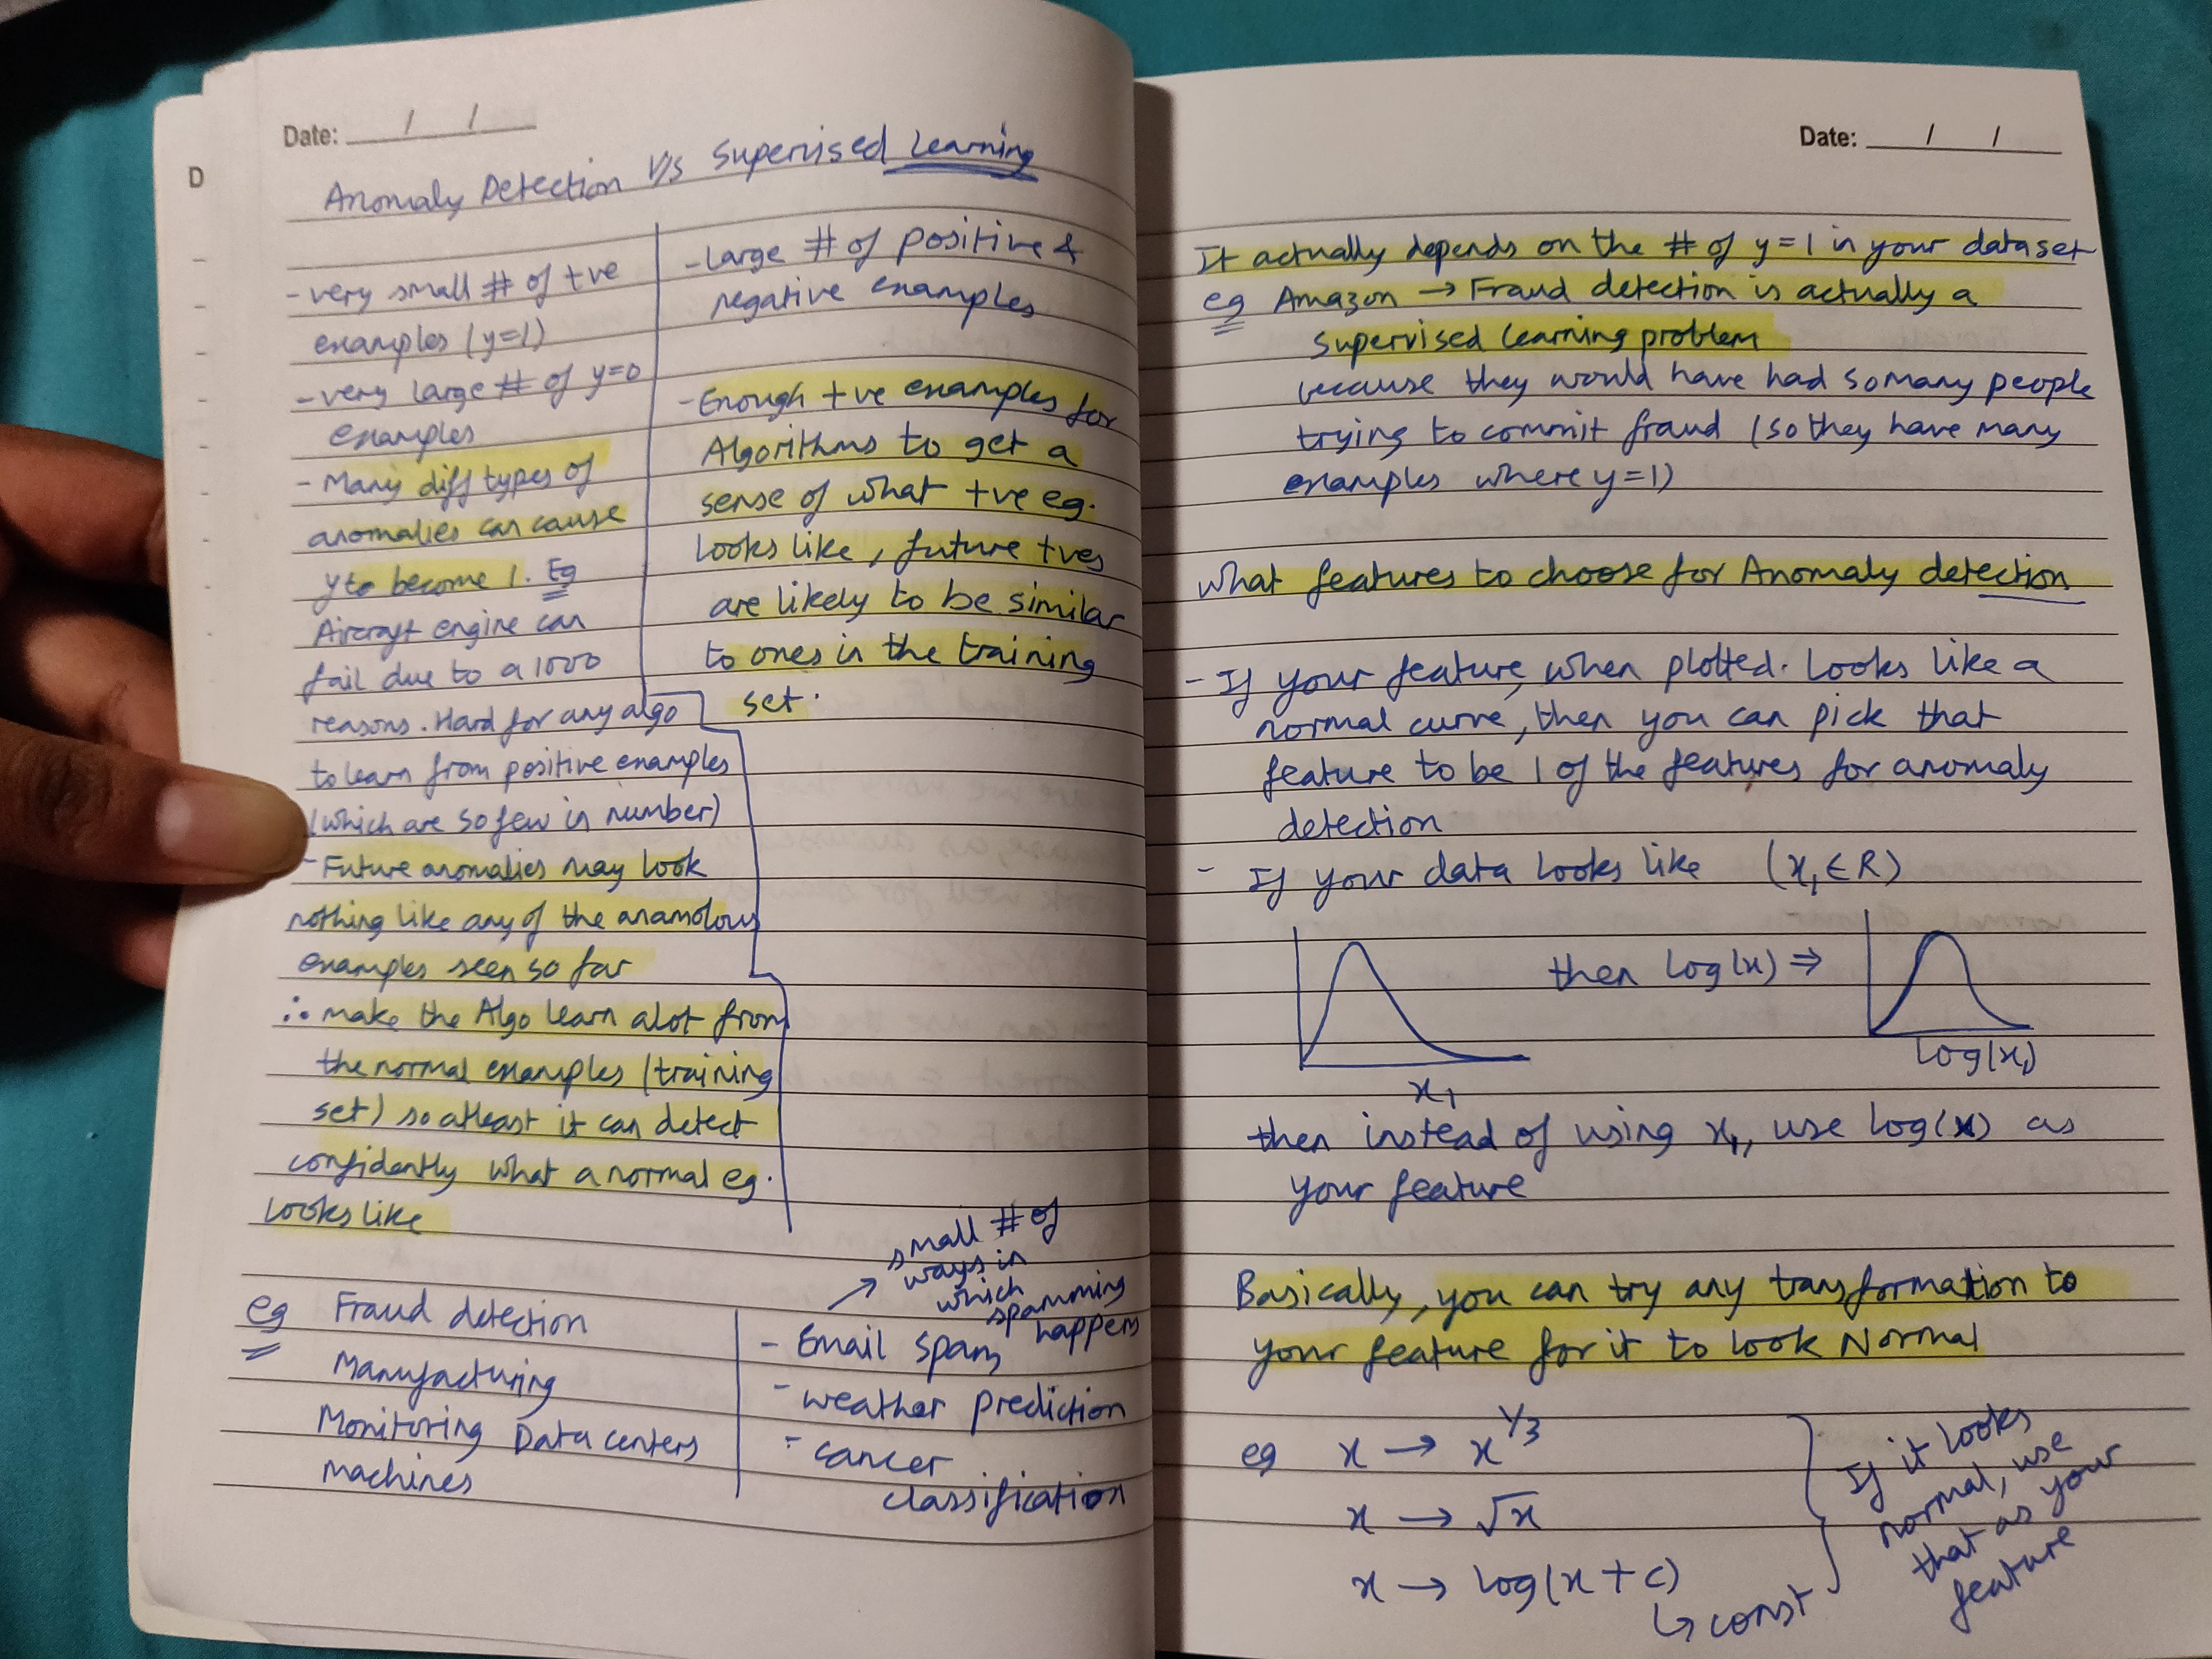 Date: / /
D
Anomaly Detection V/s Supervised Learning
- very small # of +ve
examples (y=1)
- very large # of y=0
examples
- Many diff types of
anomalies can cause
y to become 1. Eg
Aircraft engine can
fail due to a 1000
reasons. Hard for any algo
to learn from positive examples
(which are so few in number)
- Future anomalies may look
nothing like any of the anamolous
examples seen so far
∴ make the Algo learn alot from
the normal examples (training
set) so atleast it can detect
confidently what a normal eg.
looks like
- Large # of positive &
negative examples
- Enough +ve examples for
Algorithms to get a
sense of what +ve eg.
looks like, future +ves
are likely to be similar
to ones in the training
set.
eg Fraud detection
Manufacturing
Monitoring Data centers
machines
small # of
ways in
which
spamming
happens
- Email spam
- weather prediction
- cancer
classification
Date: / /
It actually depends on the # of y=1 in your dataset
eg Amazon → Fraud detection is actually a
supervised learning problem
because they would have had so many people
trying to commit fraud (so they have many
examples where y=1)
What features to choose for Anomaly detection
- If your feature, when plotted. Looks like a
normal curve, then you can pick that
feature to be 1 of the features for anomaly
detection
- If your data looks like (x₁ ∈ R)
then log(x) ⇒
x₁
log(x₁)
then instead of using x₁, use log(x) as
your feature
Basically, you can try any transformation to
your feature for it to look Normal
eg x → x^1/3
x → √x
x → log(x + c)
↳ const
If it looks
normal, use
that as your
feature